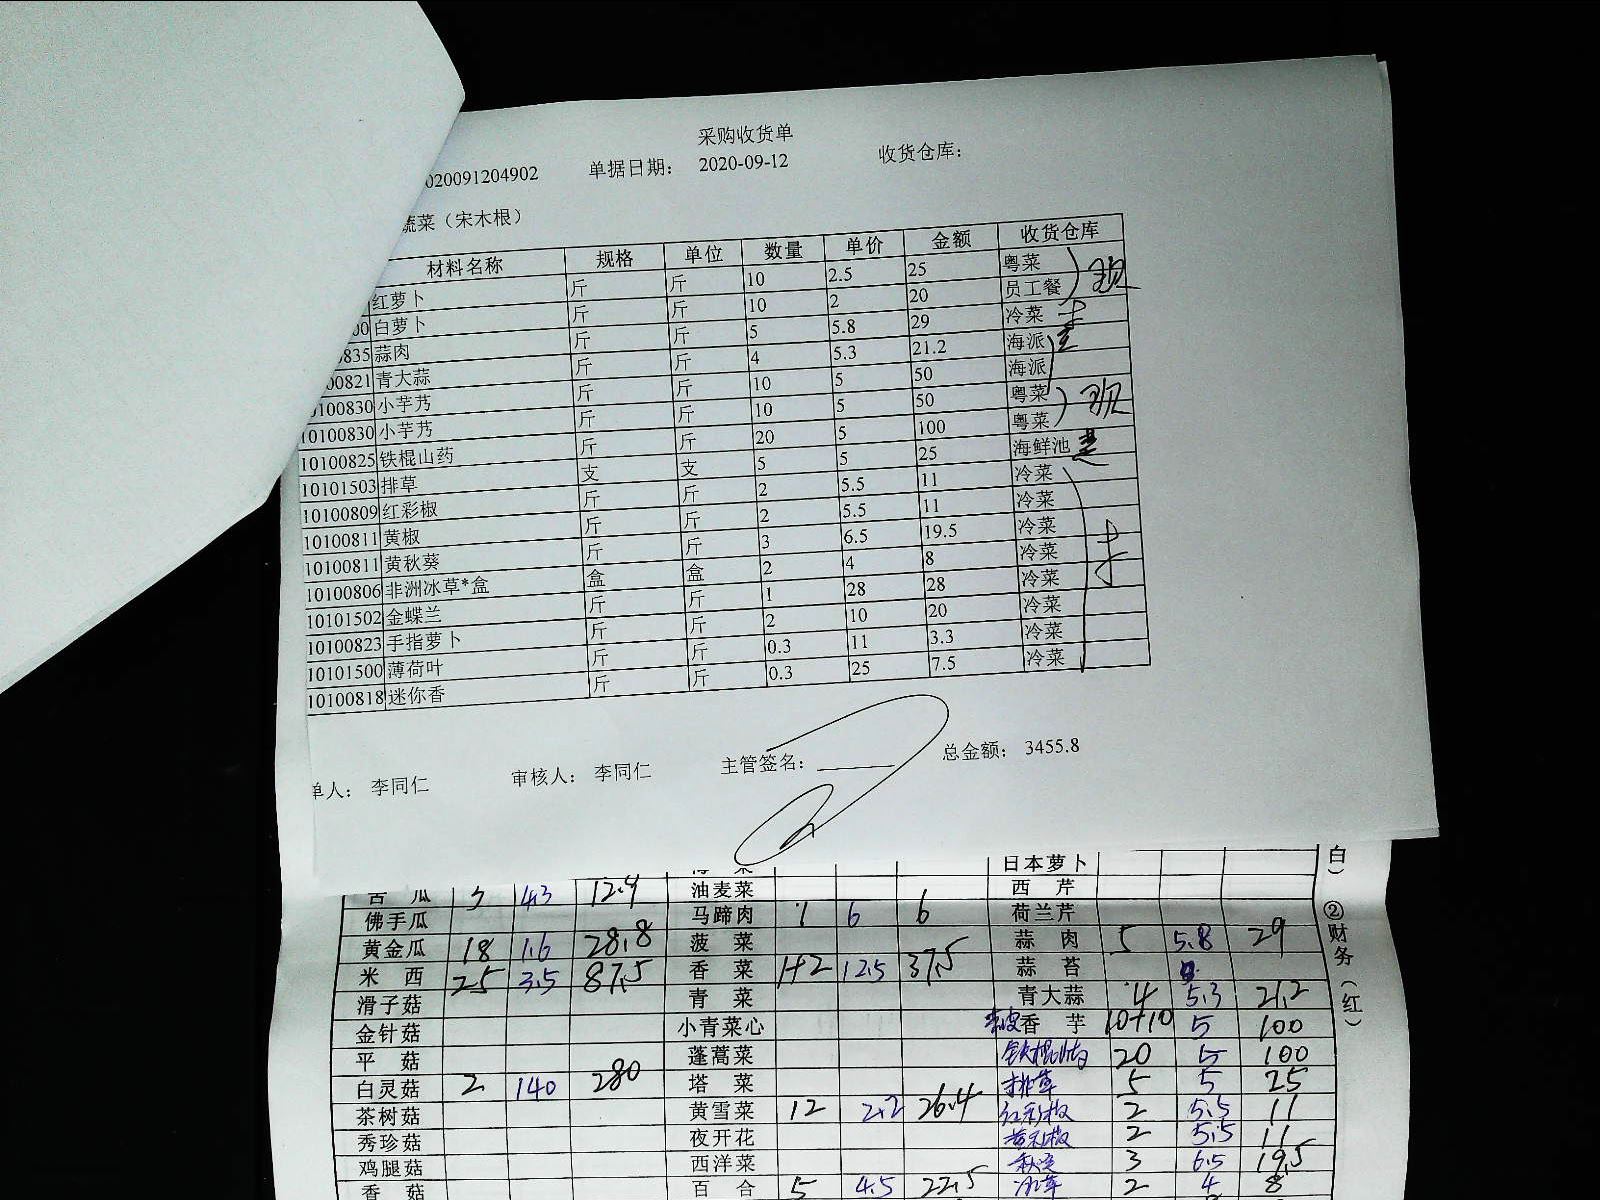 采购收货单
020091204902 单据日期： 2020-09-12 收货仓库：
蔬菜（宋木根）
材料名称 规格 单位 数量 单价 金额 收货仓库
红萝卜 斤 斤 10 2.5 25 粤菜
00 白萝卜 斤 斤 10 2 20 员工餐
835 蒜肉 斤 斤 5 5.8 29 冷菜
00821 青大蒜 斤 斤 4 5.3 21.2 海派
0100830 小芋艿 斤 斤 10 5 50 海派
10100830 小芋艿 斤 斤 10 5 50 粤菜
10100825 铁棍山药 斤 斤 20 5 100 粤菜
10101503 排草 支 支 5 5 25 海鲜池
10100809 红彩椒 斤 斤 2 5.5 11 冷菜
10100811 黄椒 斤 斤 2 5.5 11 冷菜
10100811 黄秋葵 斤 斤 3 6.5 19.5 冷菜
10100806 非洲冰草*盒 盒 盒 2 4 8 冷菜
10101502 金蝶兰 斤 斤 1 28 28 冷菜
10100823 手指萝卜 斤 斤 2 10 20 冷菜
10101500 薄荷叶 斤 斤 0.3 11 3.3 冷菜
10100818 迷你香 斤 斤 0.3 25 7.5 冷菜
单人： 李同仁 审核人： 李同仁 主管签名： 总金额： 3455.8
日本萝卜
苦瓜 3 4.3 12.9 油麦菜 西芹
佛手瓜 马蹄肉 1 6 6 荷兰芹
黄金瓜 18 1.6 28.8 菠菜 蒜肉 5 5.8 29
米西 25 3.5 87.5 香菜 1+2 12.5 37.5 蒜苔
滑子菇 青菜 青大蒜 4 5.3 21.2
金针菇 小青菜心 香芋 10+10 5 100
平菇 蓬蒿菜 铁棍山药 20 5 100
白灵菇 2 140 280 塔菜 排草 5 5 25
茶树菇 黄雪菜 12 2.2 26.4 红彩椒 2 5.5 11
秀珍菇 夜开花 黄彩椒 2 5.5 11
鸡腿菇 西洋菜 秋葵 3 6.5 19.5
香菇 百合 5 4.5 22.5 冰草 2 4 8
白） ②财务（红）